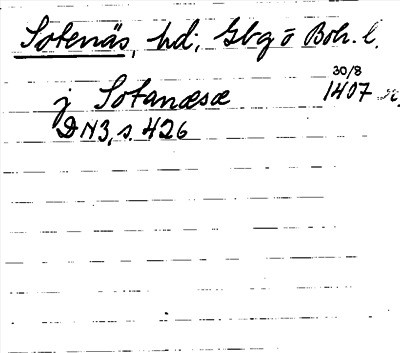 Sotenäs, hd; Gbg o Boh. l.
j Sotanæsæ 30/8 1407
DN 3, s. 426